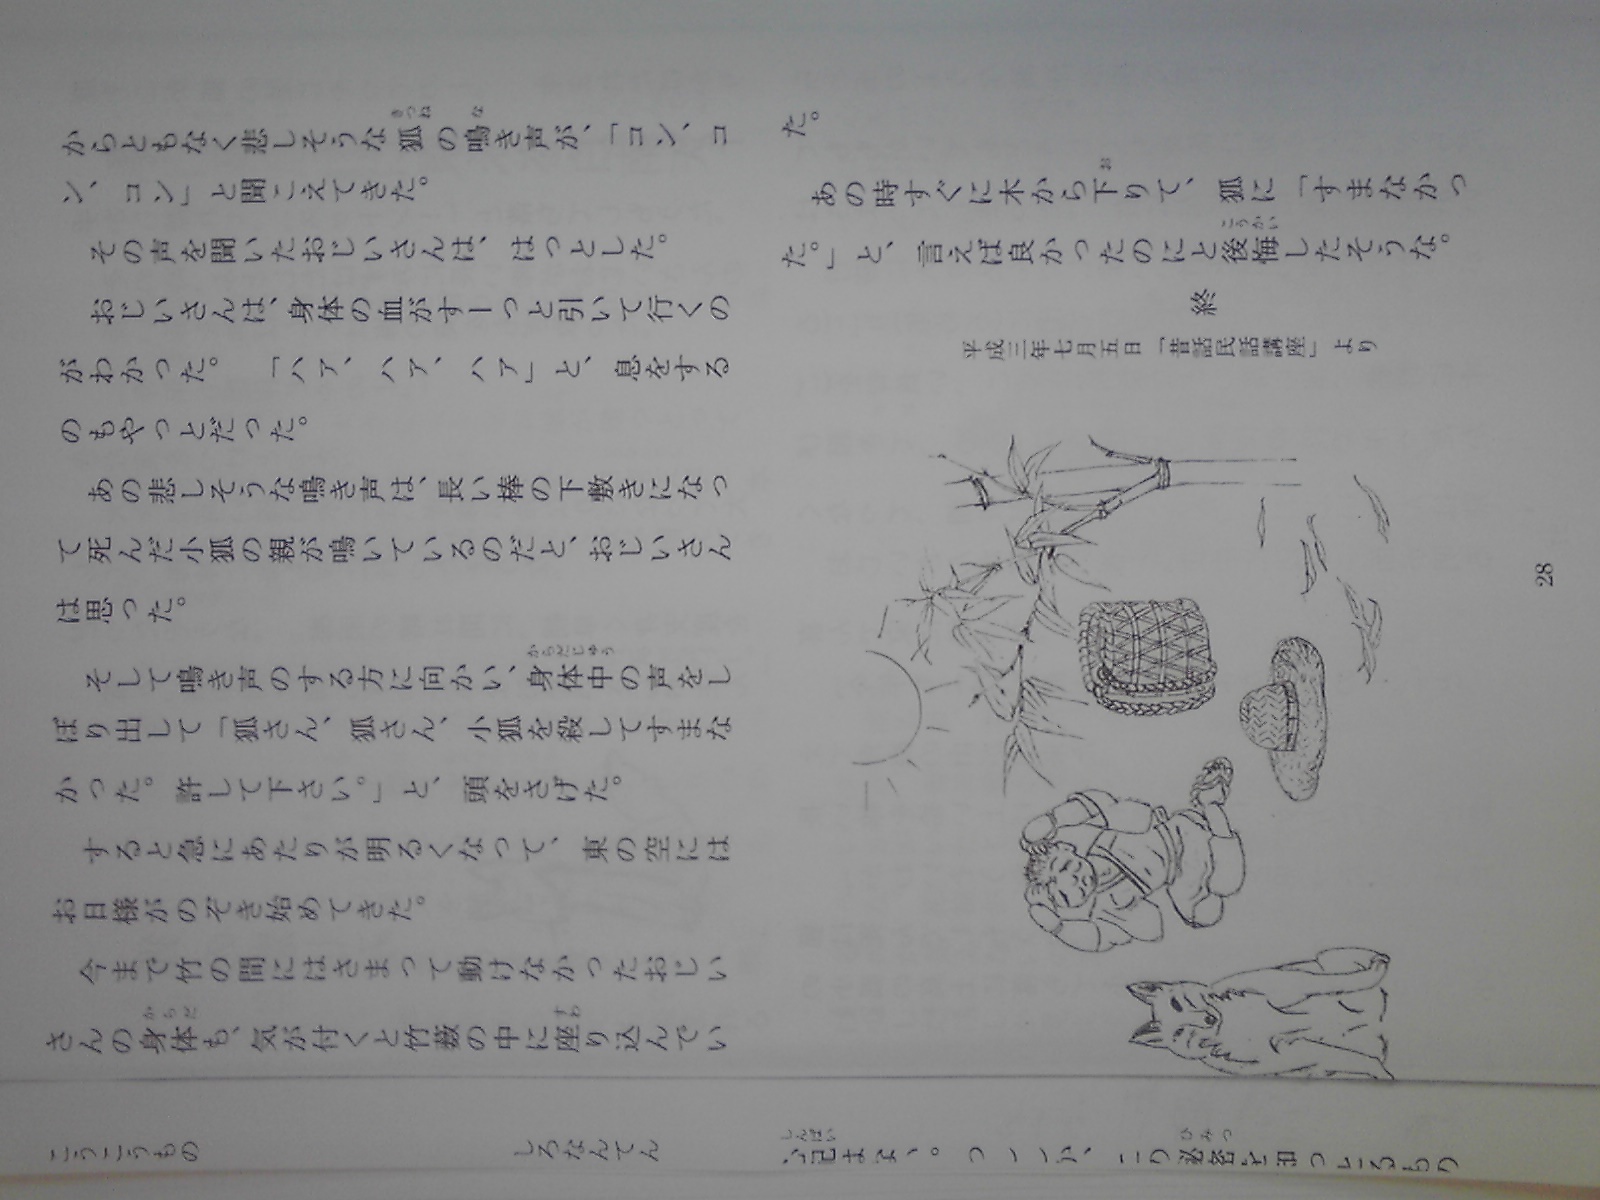 きつね　な
からともなく悲しそうな狐の鳴き声が、「コン、コ
ン、コン」と聞こえてきた。
その声を聞いたおじいさんは、はっとした。
おじいさんは、身体の血がすーっと引いて行くの
がわかった。「ハア、ハア、ハア」と、息をする
のもやっとだった。
あの悲しそうな鳴き声は、長い棒の下敷きになっ
て死んだ小狐の親が鳴いているのだと、おじいさん
は思った。
からだじゅう
そして鳴き声のする方に向かい、身体中の声をし
ぼり出して「狐さん、狐さん、小狐を殺してすまな
かった。許して下さい。」と、頭をさげた。
すると急にあたりが明るくなって、東の空には
お日様がのぞき始めてきた。
今まで竹の間にはさまって動けなかったおじい
からだ　すわ
さんの身体も、気が付くと竹薮の中に座り込んでい
た。
お
あの時すぐに木から下りて、狐に「すまなかっ
こうかい
た。」と、言えば良かったのにと後悔したそうな。
終
平成三年七月五日「昔話民話講座」より
28
こうこうもの
しろなんてん